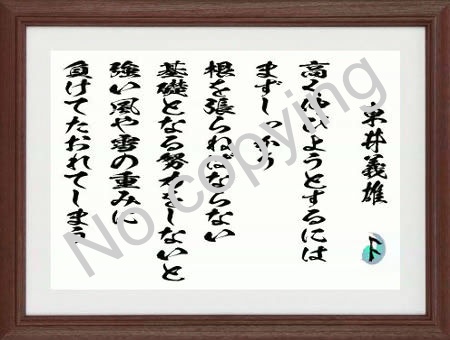 東井義雄
高く伸びようとするには
まずしっかり
根を張らねばならない
基礎となる努力をしないと
強い風や雪の重みに
負けてたおれてしまう
No copying